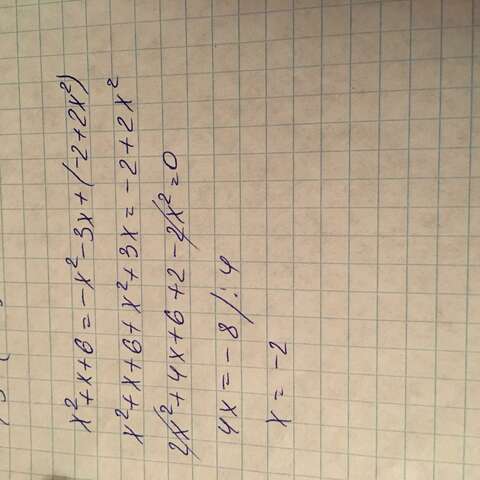 x²+x+6=-x²-3x+(-2+2x²)
x²+x+6+x²+3x=-2+2x²
2x²+4x+6+2-2x²=0
4x=-8 /:4
x=-2